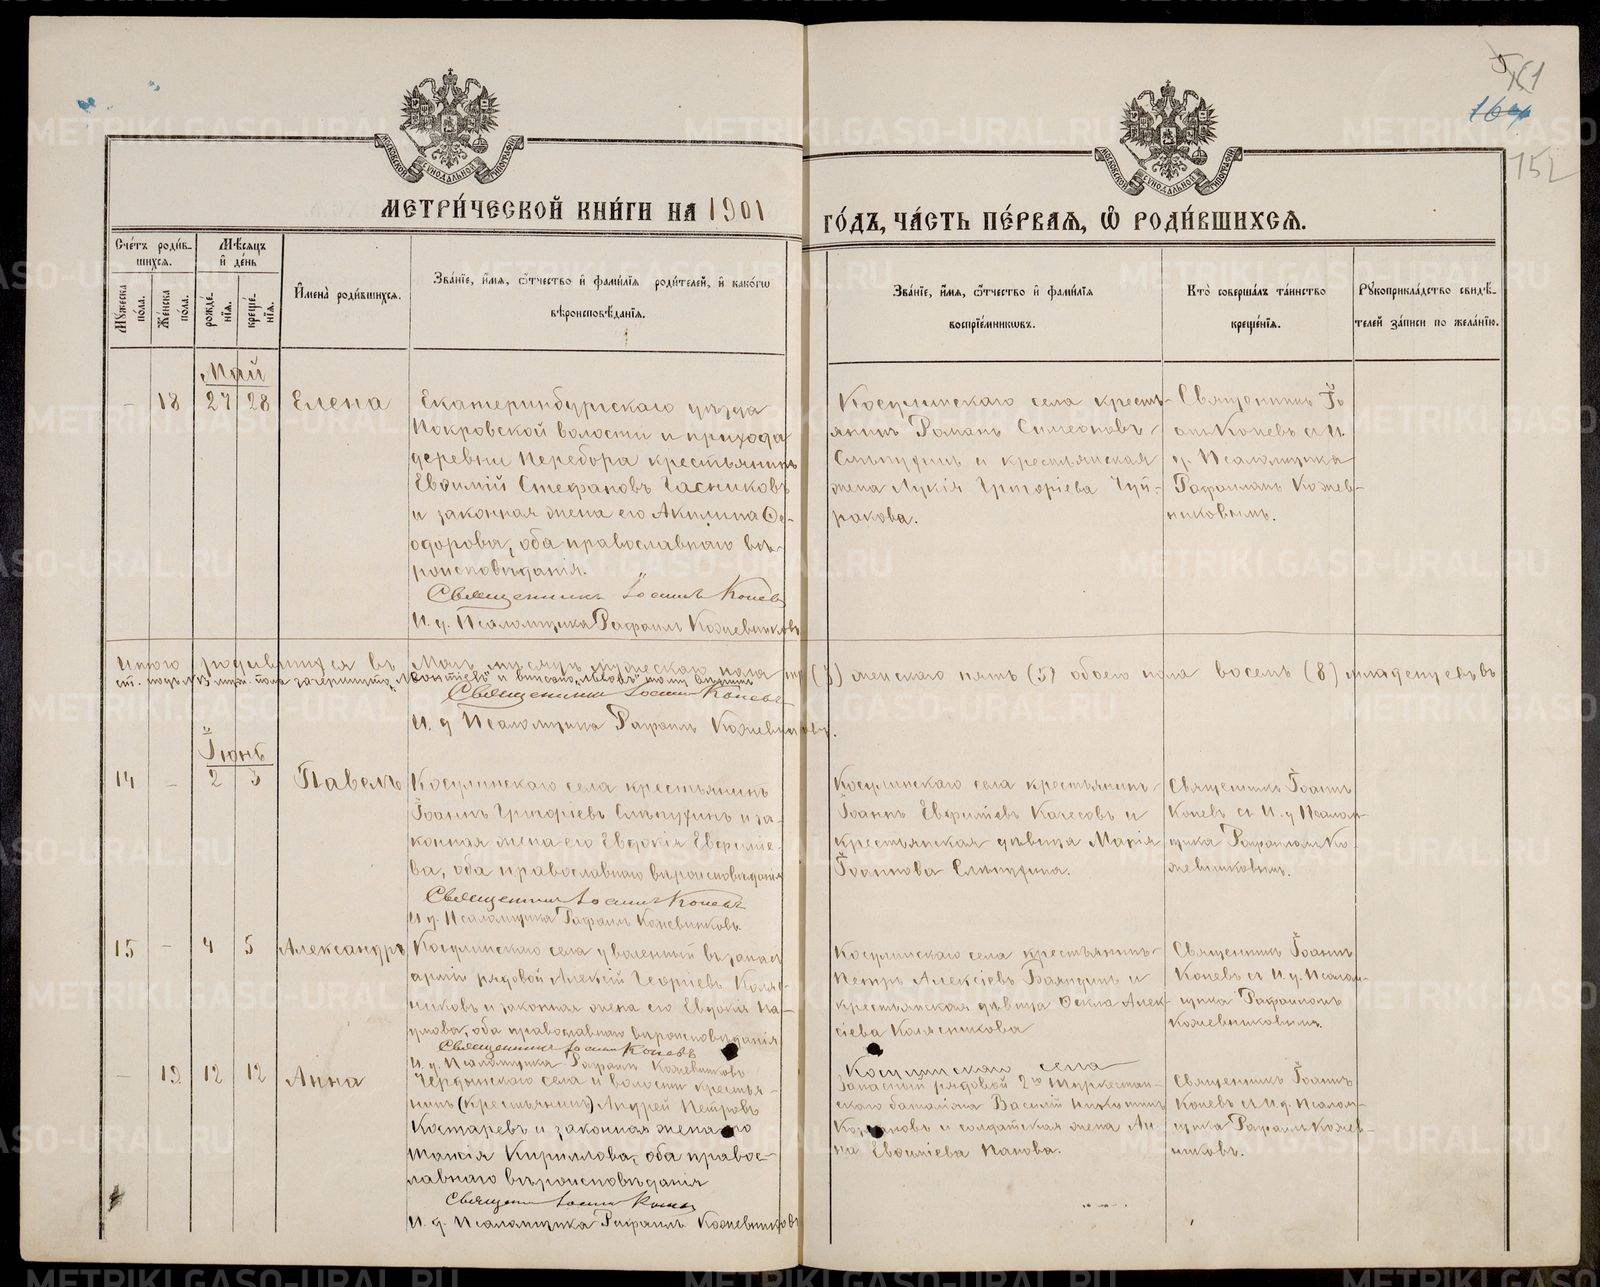 МОСКОВСКОЙ СѴНОДАЛЬНОЙ ТИПОГРАФІИ
МОСКОВСКОЙ СѴНОДАЛЬНОЙ ТИПОГРАФІИ
161
164
152
МЕТРИ́ЧЕСКОЙ КНИ́ГИ НА 1901
ГО́ДЪ, ЧА́СТЬ ПЕ́РВАЯ, Ѽ РОДИ́ВШИХСЯ.
Счетъ родившихся.
Мужеска пола.
Женска пола.
Мѣсяцъ и день
рожденія.
крещенія.
Имена родившихся.
Званіе, имя, отчество и фамилія родителей, и какого
вѣроисповѣданія.
Званіе, имя, отчество и фамилія
воспріемниковъ.
Кто совершалъ таинство
крещенія.
Рукоприкладство свидѣтелей записи по желанію.
Май
– 18 27 28 Елена
Екатеринбургскаго уѣзда
Покровской волости и прихода
деревни Перебора крестьянинъ
Евѳимій Стефановъ Часниковъ
и законная жена его Акилина Ѳе-
одорова, оба православнаго вѣ-
роисповѣданія.
Священникъ Іоаннъ Коневъ
И. д. Псаломщика Рафаилъ Кожевниковъ
Косулинскаго села кресть-
янинъ Романъ Симеоновъ
Слѣпухинъ и крестьянская
жена Лукія Григоріева Чуп-
ракова.
Священникъ Іо
аннъ Коневъ съ И.
д. Псаломщика
Рафаиломъ Кожев-
никовымъ.
Итого родившихся въ Маѣ мѣсяцѣ мужескаго пола три (3) женскаго пять (5) обоего пола восемь (8) младенцевъ
Священникъ Іоаннъ Коневъ
И. д. Псаломщика Рафаилъ Кожевниковъ.
Іюнь
14 – 2 3 Павелъ
Косулинскаго села крестьянинъ
Іоаннъ Григоріевъ Слѣпухинъ и за-
конная жена его Евдокія Евфиміе-
ва, оба православнаго вѣроисповѣданія
Священникъ Іоаннъ Коневъ
И. д. Псаломщика Рафаилъ Кожевниковъ
Косулинскаго села крестьянинъ
Іоаннъ Евфиміевъ Качесовъ и
крестьянская дѣвица Марія
Іоаннова Слѣпухина.
Священникъ Іоаннъ
Коневъ съ И. д Псалом-
щика Рафаиломъ Ко-
жевниковымъ.
15 – 4 5 Александръ
Косулинскаго села уволенный въ запасъ
арміи рядовой Алексій Георгіевъ Коляс-
никовъ и законная жена его Евдокія На-
умова, оба православнаго вѣроисповѣданія
Священникъ Іоаннъ Коневъ
И. д. Псаломщика Рафаилъ Кожевниковъ
Косулинскаго села крестьянинъ
Петръ Алексіевъ и
крестьянская дѣвица Ѳекла Алек-
сіева Колясникова
Священникъ Іоаннъ
Коневъ съ И. д. Псалом-
щика Рафаиломъ
Кожевниковымъ.
– 19 12 12 Анна
Чердынскаго села и волости крестья-
нинъ (крестьянинъ) Андрей Петровъ
Костаревъ и законная жена его
Таисія Кириллова, оба правос-
лавнаго вѣроисповѣданія
Священникъ Іоаннъ Коневъ
И. д. Псаломщика Рафаилъ Кожевниковъ
Косулинскаго села
Запасный рядовой 2го Туркестан-
скаго баталіона Василій Никитинъ
и солдатская жена Ан-
на Евѳиміева Панова.
Священникъ Іоаннъ
Коневъ съ И. д. Псалом-
щика Рафаилъ Кожев-
никовъ.
METRIKI.GASO-URAL.RU